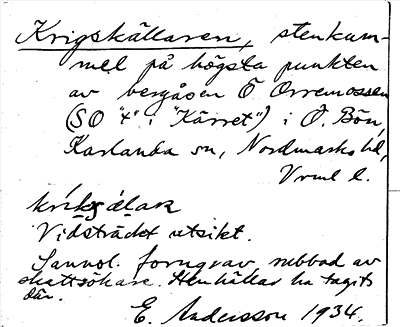 Krigskällaren, stenkum-
mel på högsta punkten
av bergåsen Ö Orremossen
(SO "4" i "Kärret") i Ö. Bön,
Karlanda sn, Nordmarks hd,
Vrml l.
Vidsträckt utsikt.
Sannol. forngrav rubbad av
skattsökare. Stenhällar ha tagits
där.
E. Andersson 1934.